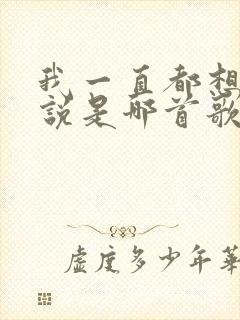 我一直都想
說是哪首歌
虛度多少年華